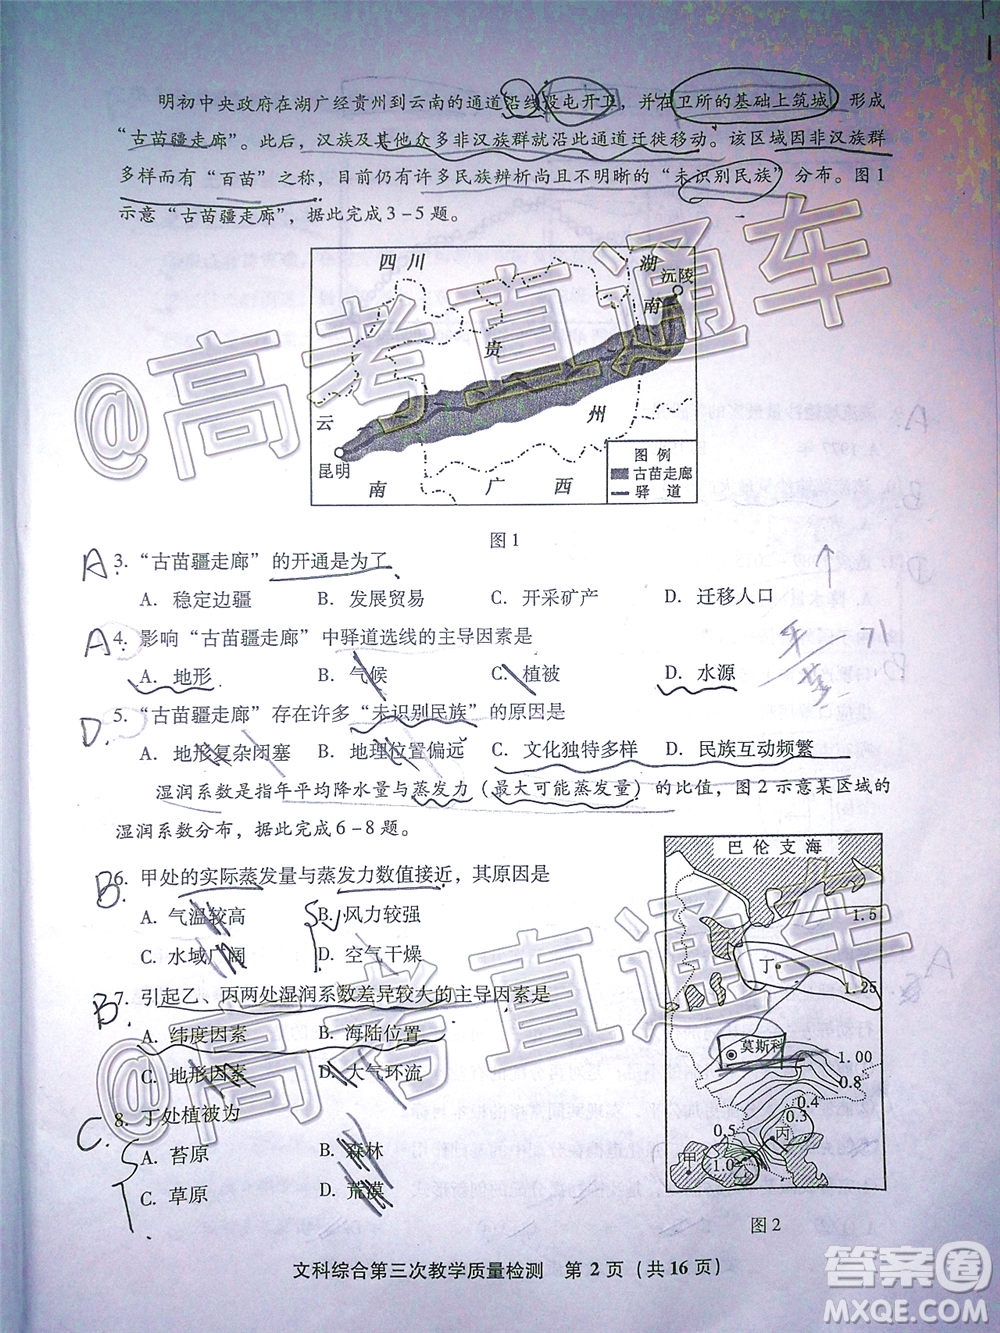 明初中央政府在湖广经贵州到云南的通道沿线设屯开卫，并在卫所的基础上筑城，形成
“古苗疆走廊”。此后，汉族及其他众多非汉族群就沿此通道迁徙移动。该区域因非汉族群
多样而有“百苗”之称，目前仍有许多民族辨析尚且不明晰的“未识别民族”分布。图1
示意“古苗疆走廊”，据此完成3－5题。
四川
湖
沅陵
南
贵
云
州
昆明
南
广
西
图例
古苗走廊
驿道
图1
A
3. “古苗疆走廊”的开通是为了
A. 稳定边疆 B. 发展贸易 C. 开采矿产 D. 迁移人口
A
4. 影响“古苗疆走廊”中驿道选线的主导因素是
A. 地形 B. 气候 C. 植被 D. 水源
D.
5. “古苗疆走廊”存在许多“未识别民族”的原因是
A. 地形复杂闭塞 B. 地理位置偏远 C. 文化独特多样 D. 民族互动频繁
湿润系数是指年平均降水量与蒸发力（最大可能蒸发量）的比值，图2示意某区域的
湿润系数分布，据此完成6－8题。
B
6. 甲处的实际蒸发量与蒸发力数值接近，其原因是
A. 气温较高 B. 风力较强
C. 水域广阔 D. 空气干燥
B
7. 引起乙、丙两处湿润系数差异较大的主导因素是
A. 纬度因素 B. 海陆位置
C. 地形因素 D. 大气环流
C.
8. 丁处植被为
A. 苔原 B. 森林
C. 草原 D. 荒漠
巴伦支海
1.5
丁
1.25
莫斯科
1.00
0.8
0.4
0.3
0.5
丙
甲
1.0
图2
文科综合第三次教学质量检测 第2页（共16页）
@高考直通车
@高考直通车
答案圈
MXQE.COM